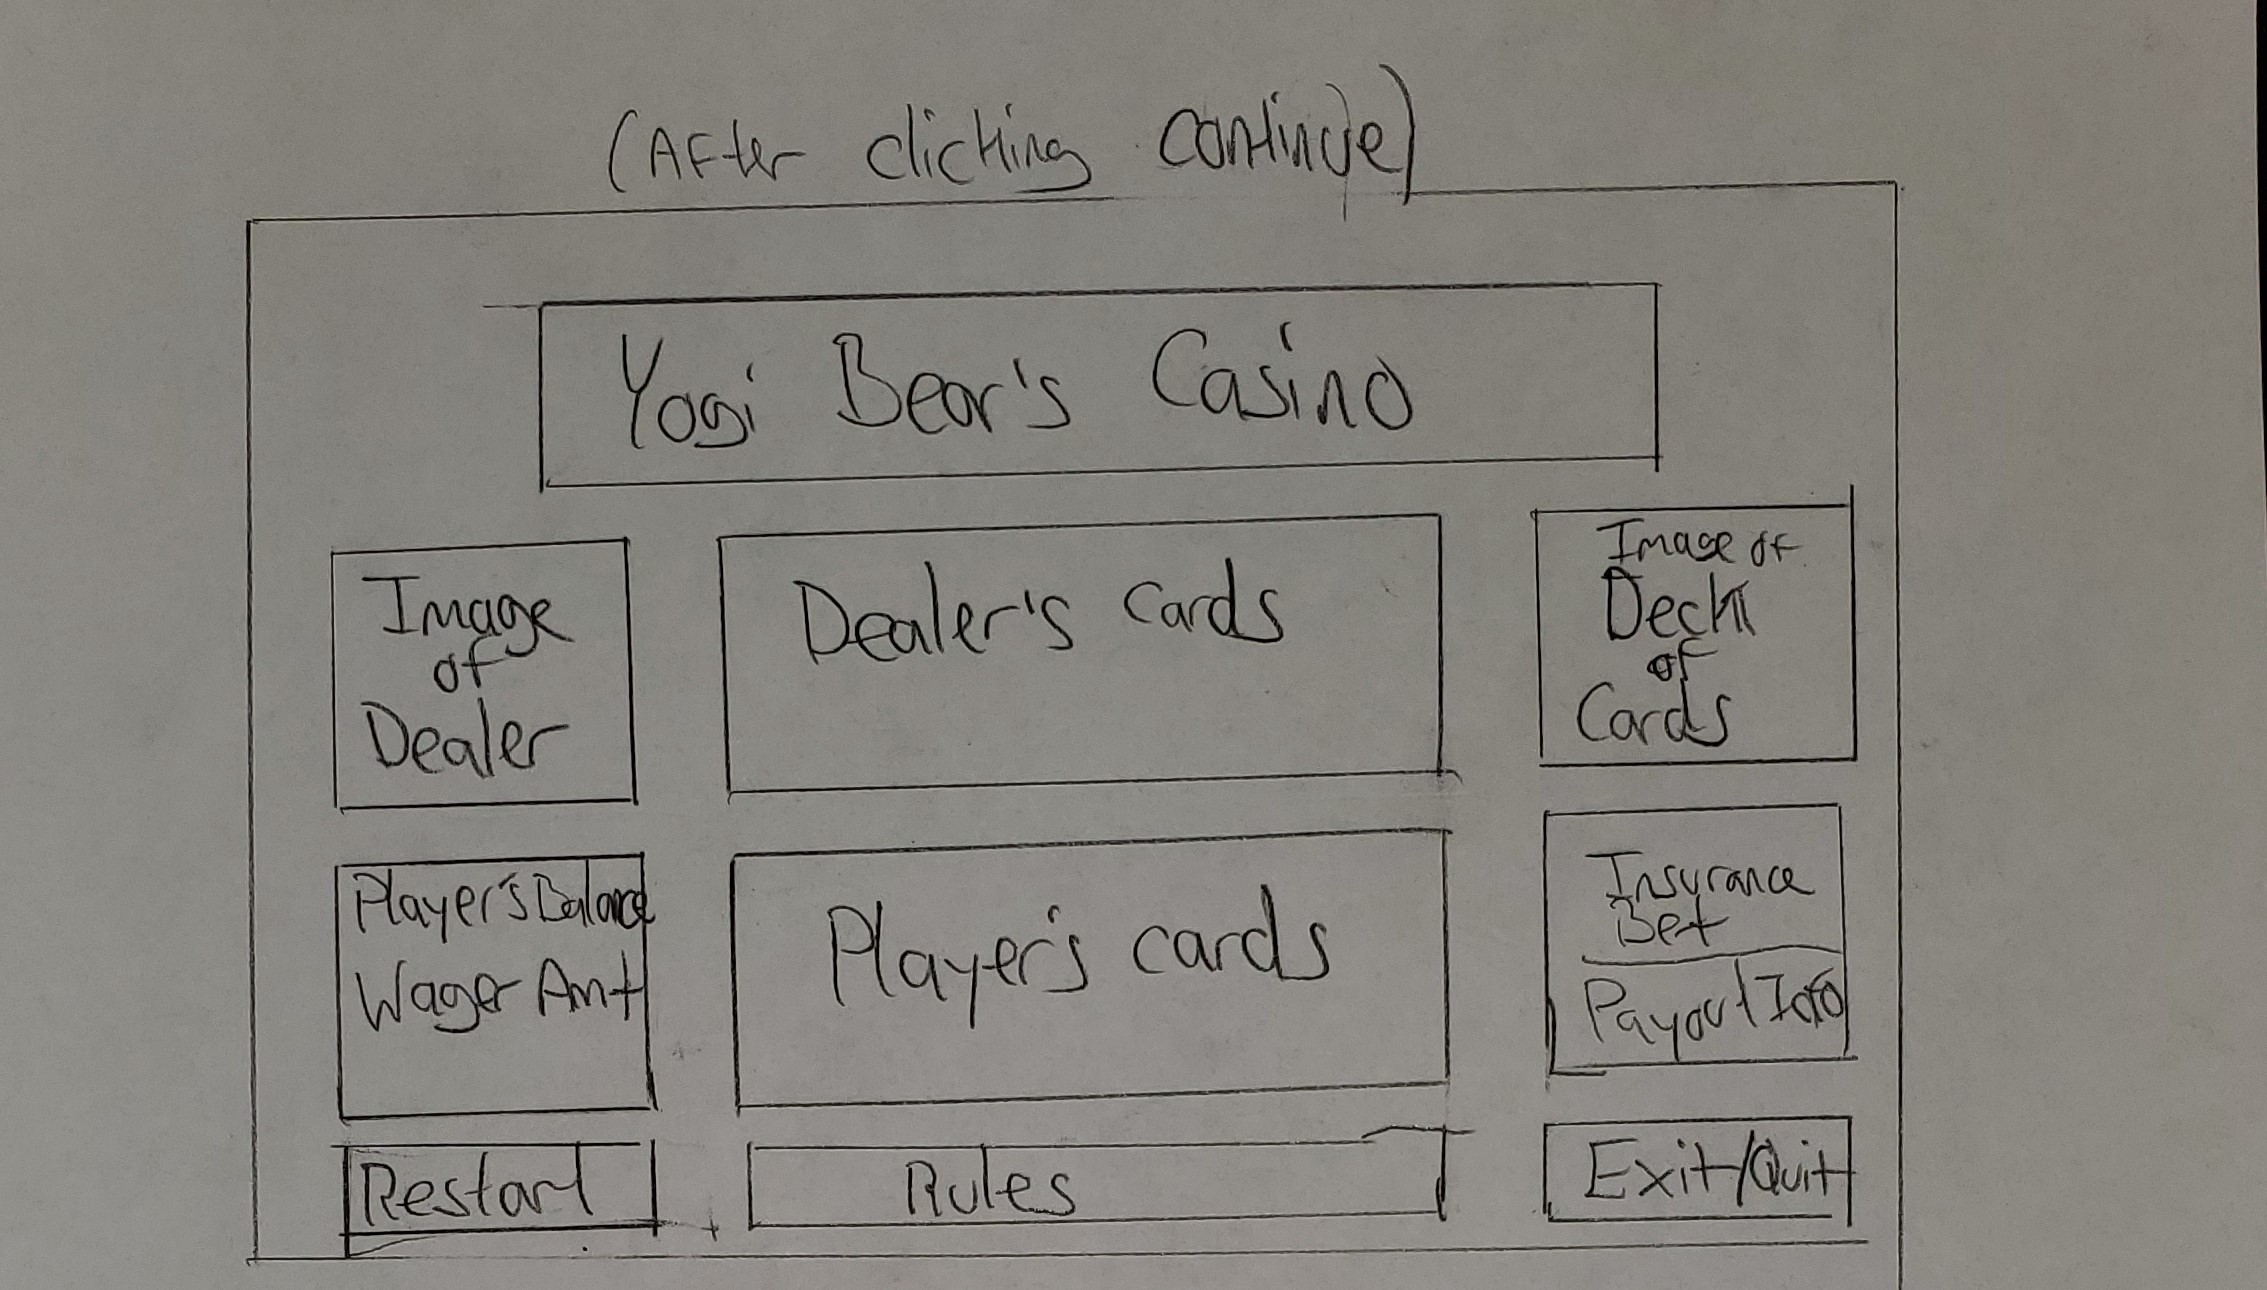 (After clicking continue)
Yogi Bear's Casino
Image
of
Dealer
Dealer's cards
Image of
Deck
of
Cards
Player's Balance
Wager Amt
Player's cards
Insurance
Bet
Payout Info
Restart
Rules
Exit/Quit